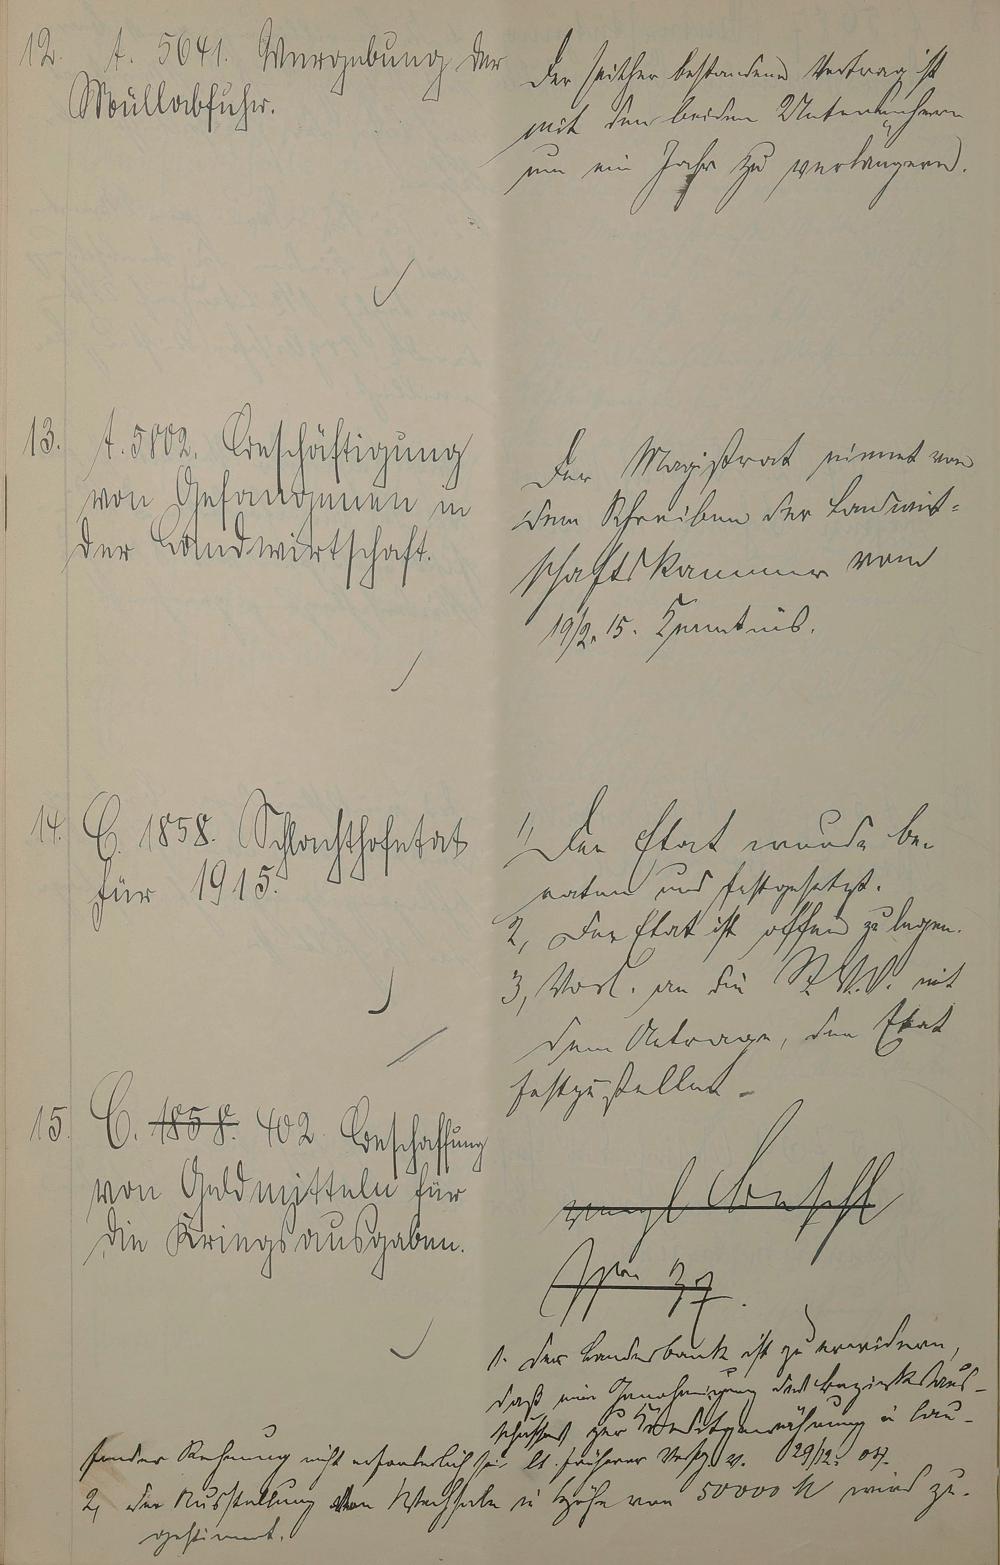 12. A. 5641. Vergebung der
Müllabfuhr.
Der seither bestandene Vertrag ist
mit den beiden Unternehmern
um ein Jahr zu verlängern.
13. A. 5802. Beschäftigung
von Gefangenen in
der Landwirtschaft.
Der Magistrat nimmt von
dem Schreiben der Landwirt-
schaftskammer vom
19/2. 15. Kenntnis.
14. C. 1858. Schlachthofetat
für 1915.
1, Der Etat wurde be-
raten und festgesetzt.
2, Der Etat ist offen zu legen.
3, Vorl. an die St. V. V. mit
dem Antrage, den Etat
festzustellen.
15. C. 1858. 402. Beschaffung
von Geldmitteln für
die Kriegsausgaben.
vergl Beschl
37.
1. Der Landesbank ist zu erwidern,
daß eine Genehmigung des Bezirksaus-
schusses zur Kreditgewährung in lau-
fender Rechnung nicht erforderlich sei lt. früherer Verfg. v. 29/12. 07.
2, Der Ausstellung von Wechseln in Höhe von 50000 M wird zu-
gestimmt.